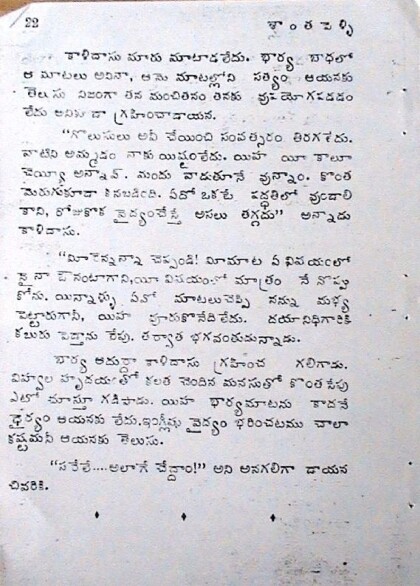 22 శాంతపెళ్ళి
కాళిదాసు మారు మాటాడలేదు. భార్య బాధలో
ఆ మాటలు అనినా, ఆమె మాటల్లోని సత్యం ఆయనకు
తెలుసు నిజంగా తన మంచితనం తనకు వుపయోగపడడం
లేదు అనికూడా గ్రహించాడాయన.
"గొలుసులు అవి చేయించి సంవత్సరం తిరగలేదు.
వాటిని అమ్మడం నాకు యిష్టంలేదు. యిహ యీ కాలూ
చెయ్యీ అన్నావ్. మందు వాడుతూనే వున్నాం. కొంత
మెరుగుకూడా కనబడింది. ఏదో ఒకటే పద్ధతిలో వుండాలి
కాని, రోజుకొక వైద్యంచేస్తే అసలు తగ్గదు" అన్నాడు
కాళిదాసు.
"మీరెన్నన్నా చెప్పండి! మీమాట ఏ విషయంలో
నైనా ఔనంటాగాని, యీ విషయంలో మాత్రం నే నొప్పు
కోను. యిన్నాళ్ళు ఏవో మాటలుచెప్పి నన్ను మభ్య
పెట్టారుగానీ, యిహ వూరుకొనేదిలేదు. దయానిధిగారికి
కబురు పెడ్తాను రేపు. తర్వాత భగవంతుడున్నాడు.
భార్య ఆదుర్దా కాళిదాసు గ్రహించ గలిగాడు.
విహ్వల హృదయంతో కలత చెందిన మనసుతో కొంతసేపు
ఎటో చూస్తూ గడిపాడు. యిహ భార్యమాటను కాదనే
ధైర్యం ఆయనకు లేదు. ఇంగ్లీషు వైద్యం భరించటము చాలా
కష్టమనీ ఆయనకు తెలుసు.
"సరేలే....అలాగే చేద్దాం!" అని అనగలిగా డాయన
చివరికి.